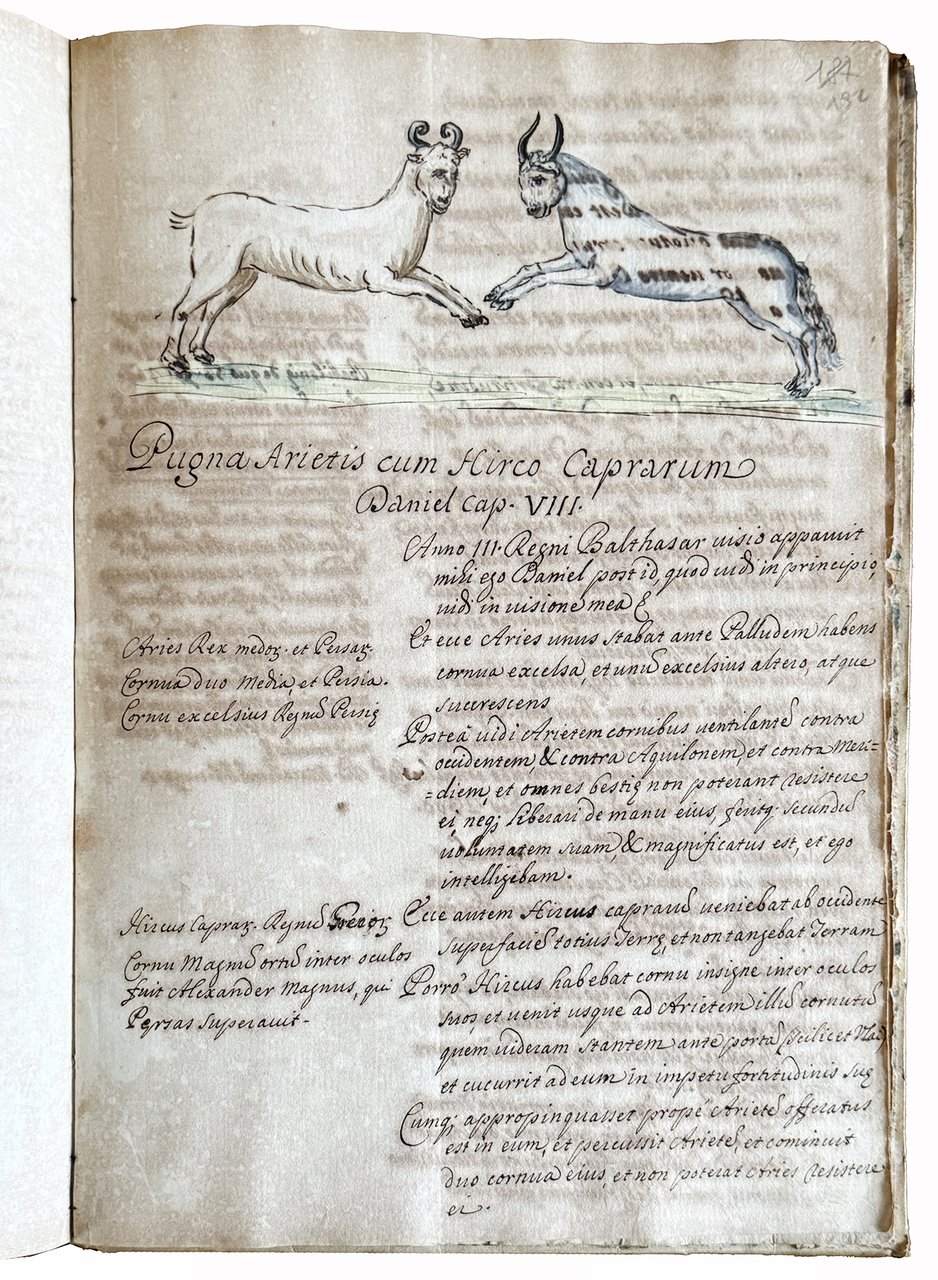 187
192
Pugna Arietis cum Hirco Caprarum
Daniel Cap. VIII.
Anno III. Regni Balthasar uisio apparuit
mihi ego Daniel post id, quod uidi in principio,
uidi in uisione mea &
Aries Rex medoꝝ. et Persaꝝ.
Cornua duo Media, et Persia.
Cornu excelsius Regnū Persię
Et ecce Aries unus stabat ante Palludem habens
cornua excelsa, et unū excelsius altero, atque
sucrescens
Posteà uidi Arietem cornibus uentilantē contra
occidentem, & contra Aquilonem, et contra Meri=
=diem, et omnes bestię non poterant resistere
ei, neq; liberari de manu eius, fecitq; secundū
uoluntatem suam, & magnificatus est, et ego
intelligebam.
Hircus Capraꝝ. Regnū Grecoꝝ
Cornu Magnū ortū inter oculos
fuit Alexander Magnus, qui
Persas superauit.
Ecce autem Hircus caprarū ueniebat ab occidente
super faciē totius Terrę, et non tangebat Terram
Porrò Hircus habebat cornu insigne inter oculos
suos, et uenit usque ad Arietem illū cornutū
quem uideram stantem ante portā (scilicet Vlai)
et cucurrit ad eum in impetu fortitudinis suę
Cumq; appropinquasset propè Arietē efferatus
est in eum, et percussit Arietē, et cominuit
duo cornua eius, et non poterat Aries resistere
ei.